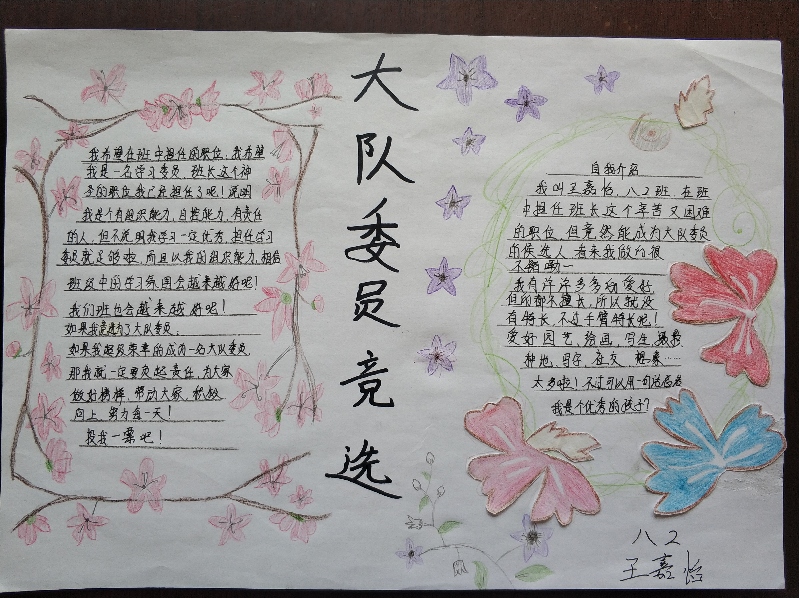 大队委员竞选
我希望在班中担任的职位，我希望
我是一名学习委员，班长这个神
圣的职位我已经担任了呢！说明
我是个有组织能力，自控能力，有责任
的人，但不说明我学习一定优秀，担任学习
委员就足够啦，而且以我的组织能力，相信
班级中的学习氛围会越来越好呢！
我们班也会越来越好呢！
如果我竞选为了大队委员
如果我超级荣幸的成为一名大队委员，
那我就一定要负起责任，为大家
做好榜样，带动大家，积极
向上，努力每一天！
投我一票吧！
自我介绍
我叫王嘉怡，八2班，在班
中担任班长这个辛苦又困难
的职位，但竟然能成为大队委员
的候选人，看来我做的很
不错呦~
我有许许多多的爱好，
但所都不擅长，所以就没
有特长，不过手臂特长呢！
爱好园艺，绘画，写生，
种地，写字，社交，想象……
太多啦！不过可以用一句话总结
我是个优秀的孩子？
八2
王嘉怡